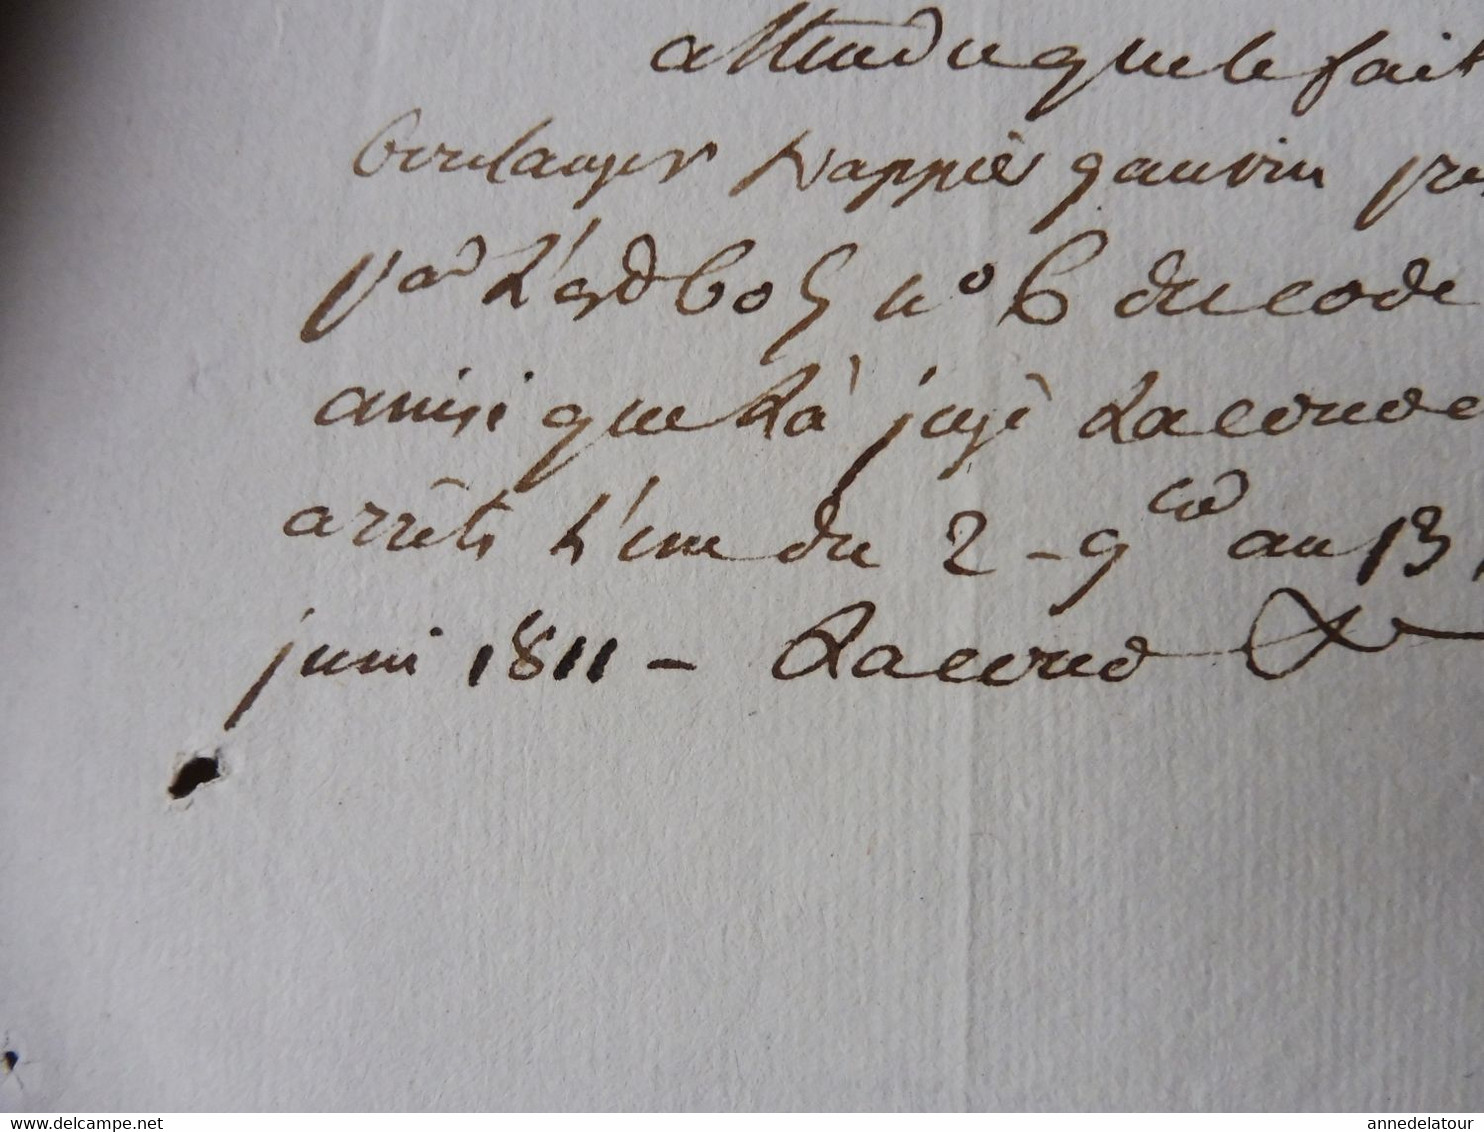 attendu que le fait
boulanger
par L'art 605 n° 6 du code
ainsi que L'a jugé La cour de
arrêts L'un du 2 - au 13,
juin 1811 - La cour
www.delcampe.net
annedelatour